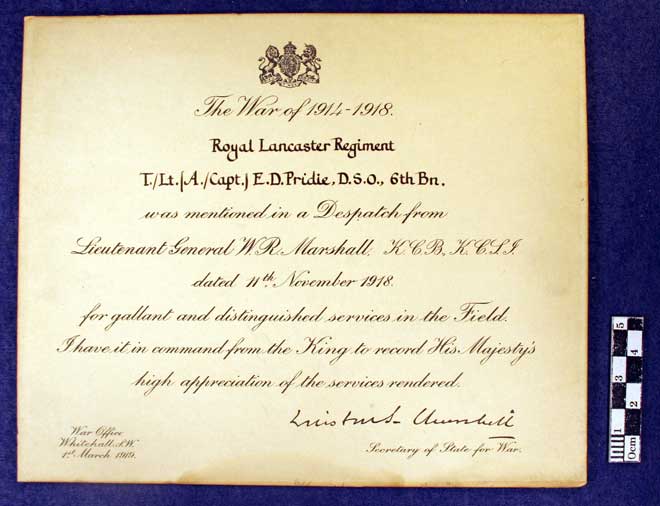 The War of 1914-1918.
Royal Lancaster Regiment
T./Lt.(A./Capt.) E.D.Pridie, D.S.O., 6th Bn.
was mentioned in a Despatch from
Lieutenant General W.R. Marshall, K.C.B., K.C.S.I.
dated 11th November 1918.
for gallant and distinguished services in the Field.
I have it in command from the King to record His Majesty's
high appreciation of the services rendered.
Winston S. Churchill
War Office
Whitehall, S.W.
1st March 1919.
Secretary of State for War.
0cm 1 2 3 4 5